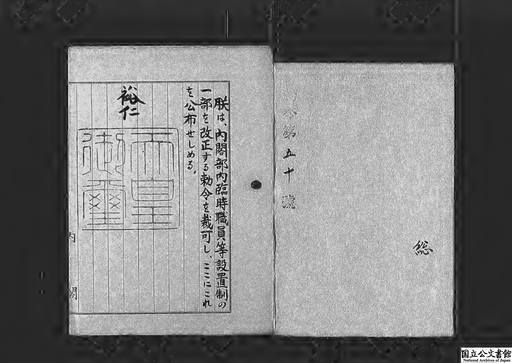 五十號
総
朕は、內閣部內臨時職員等設置制の
一部を改正する勅令を裁可し、ここにこれ
を公布せしめる。
裕仁
天皇
御璽
内閣
国立公文書館
National Archives of Japan